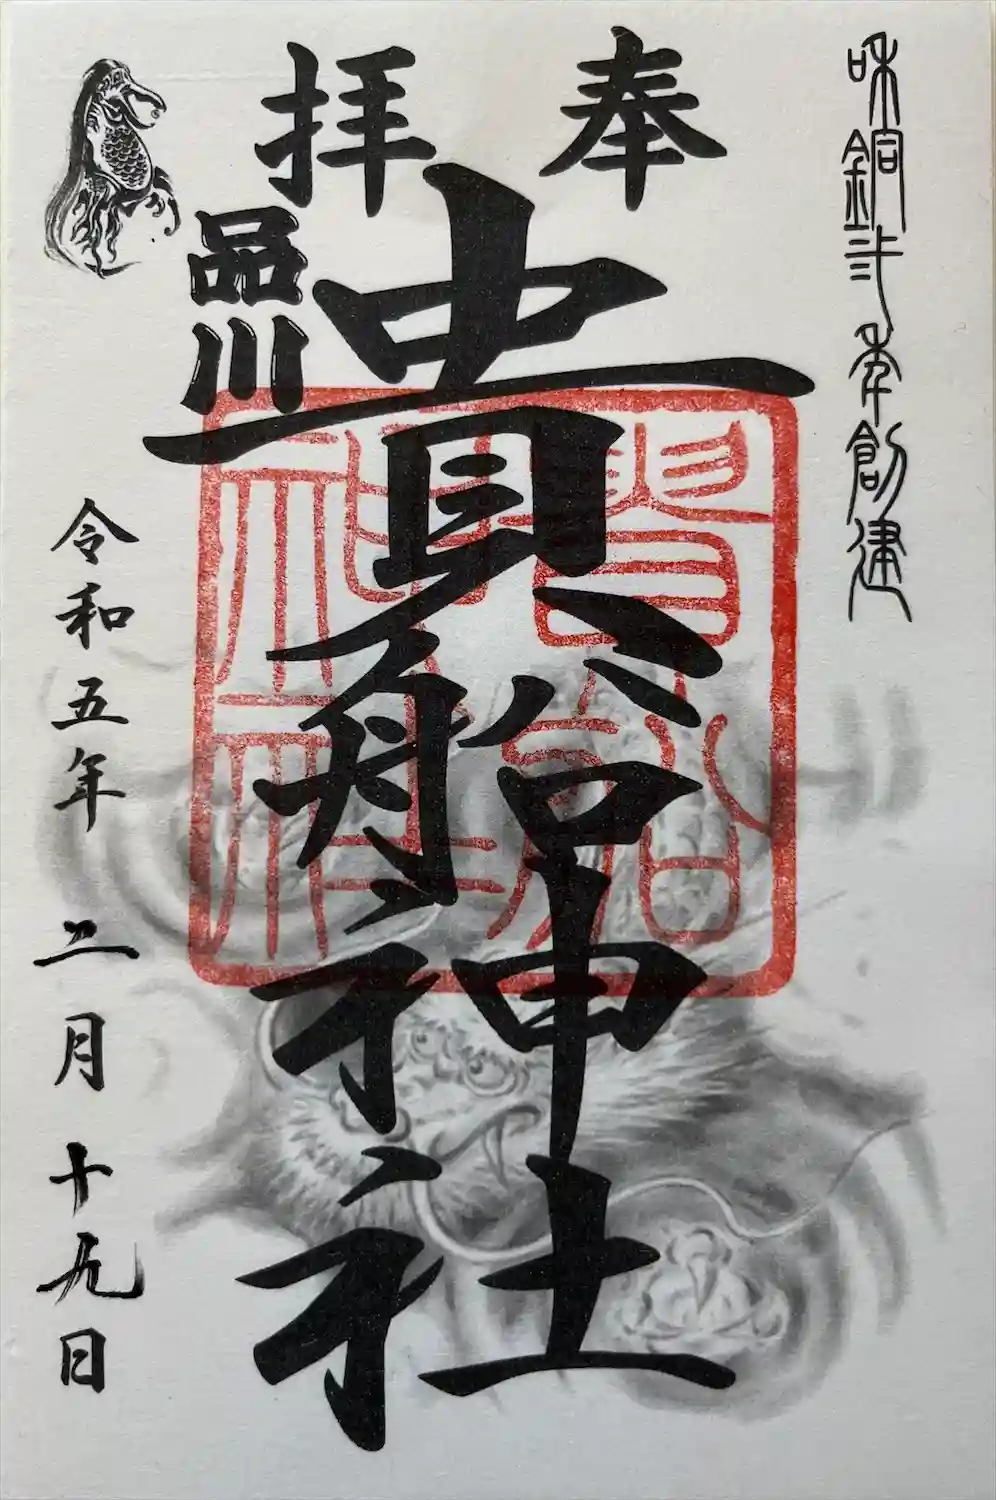 和銅弍年創建
奉拝
品川
貴船神社
貴船神社
令和五年二月十九日